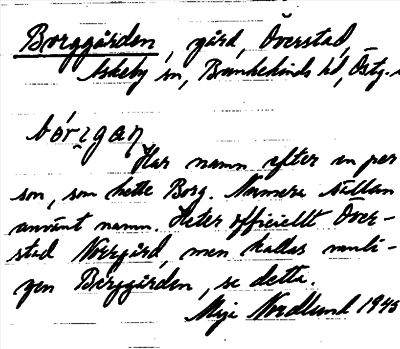 Borggården, gård, Överstad,
Askeby sn, Bankekinds hd, Östg.
bórgan
Har namn efter en per
son, som hette Borg. Numera sällan
använt namn. Heter officiellt Över-
stad Norrgård, men kallas vanli-
gen Berggården, se detta.
Maja Nordlund 1945